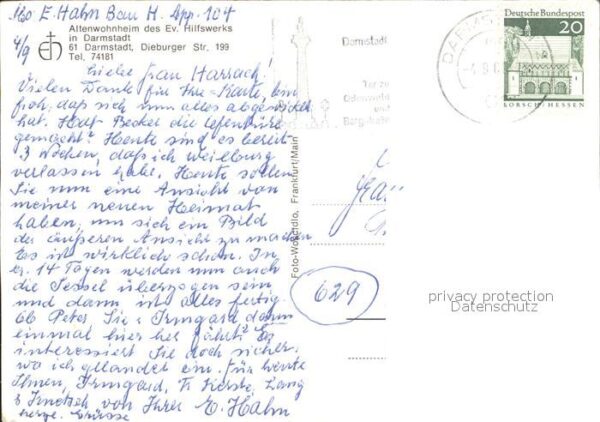 Mo E. Hahn Bau H. App. 104
4/9
Altenwohnheim des Ev. Hilfswerks
in Darmstadt
61 Darmstadt, Dieburger Str. 199
Tel. 74181
Liebe Frau Harrach!
Vielen Dank für Ihre Karte, bin
froh, daß sich nun alles abgewickelt
hat. Hat Becker die
gemacht? Heute sind es bereits
3 Wochen, daß ich Weilburg
verlassen habe. Heute sollen
Sie nun eine Ansicht von
meiner neuen Heimat
haben, um sich ein Bild
der äußeren Ansicht zu machen
Es ist wirklich schön. In
ca. 14 Tagen werden nun auch
die Sessel überzogen sein
und dann ist alles fertig.
Ob Peter Sie u. Irmgard dann
einmal hier her fährt? Es
interessiert Sie doch sicher,
wo ich gelandet bin. Für heute
Ihnen, Irmgard,
von Ihrer E. Hahn
herzl. Grüsse
Foto-Wokordio, Frankfurt/Main
Darmstadt
Tor zu
Odenwald
und
Bergstraße
Deutsche Bundespost
20
LORSCH/HESSEN
629
privacy protection
Datenschutz